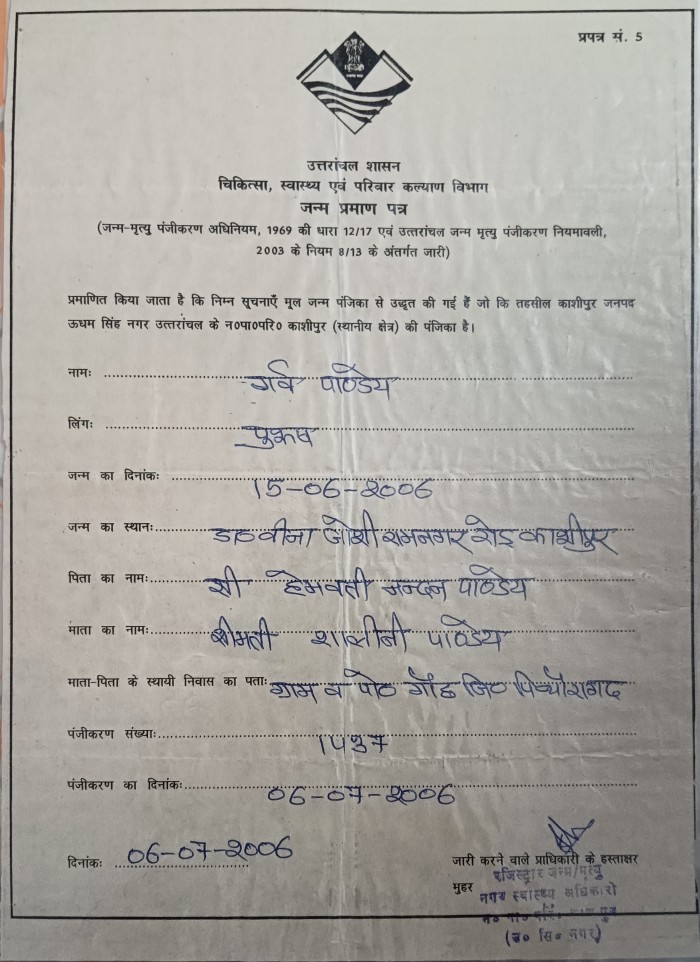 प्रपत्र सं. 5
उत्तरांचल शासन
चिकित्सा, स्वास्थ्य एवं परिवार कल्याण विभाग
जन्म प्रमाण पत्र
(जन्म-मृत्यु पंजीकरण अधिनियम, 1969 की धारा 12/17 एवं उत्तरांचल जन्म मृत्यु पंजीकरण नियमावली,
2003 के नियम 8/13 के अंतर्गत जारी)
प्रमाणित किया जाता है कि निम्न सूचनाएँ मूल जन्म पंजिका से उद्धृत की गई हैं जो कि तहसील काशीपुर जनपद
ऊधम सिंह नगर उत्तरांचल के न०पा०परि० काशीपुर (स्थानीय क्षेत्र) की पंजिका है।
नामः गर्व पाण्डेय
लिंगः पुरूष
जन्म का दिनांकः 15-06-2006
जन्म का स्थानः डा० वीना जोशी रामनगर रोड़ काशीपुर
पिता का नामः श्री हेमवती नन्दन पाण्डेय
माता का नामः श्रीमती शालीनी पाण्डेय
माता-पिता के स्थायी निवास का पताः ग्राम व पो० जि० पिथौरागढ़
पंजीकरण संख्याः 1437
पंजीकरण का दिनांकः 06-07-2006
दिनांकः 06-07-2006
जारी करने वाले प्राधिकारी के हस्ताक्षर
मुहर
रजिस्ट्रार जन्म/मृत्यु
नगर स्वास्थ्य अधिकारी
(ऊ० सि० नगर)